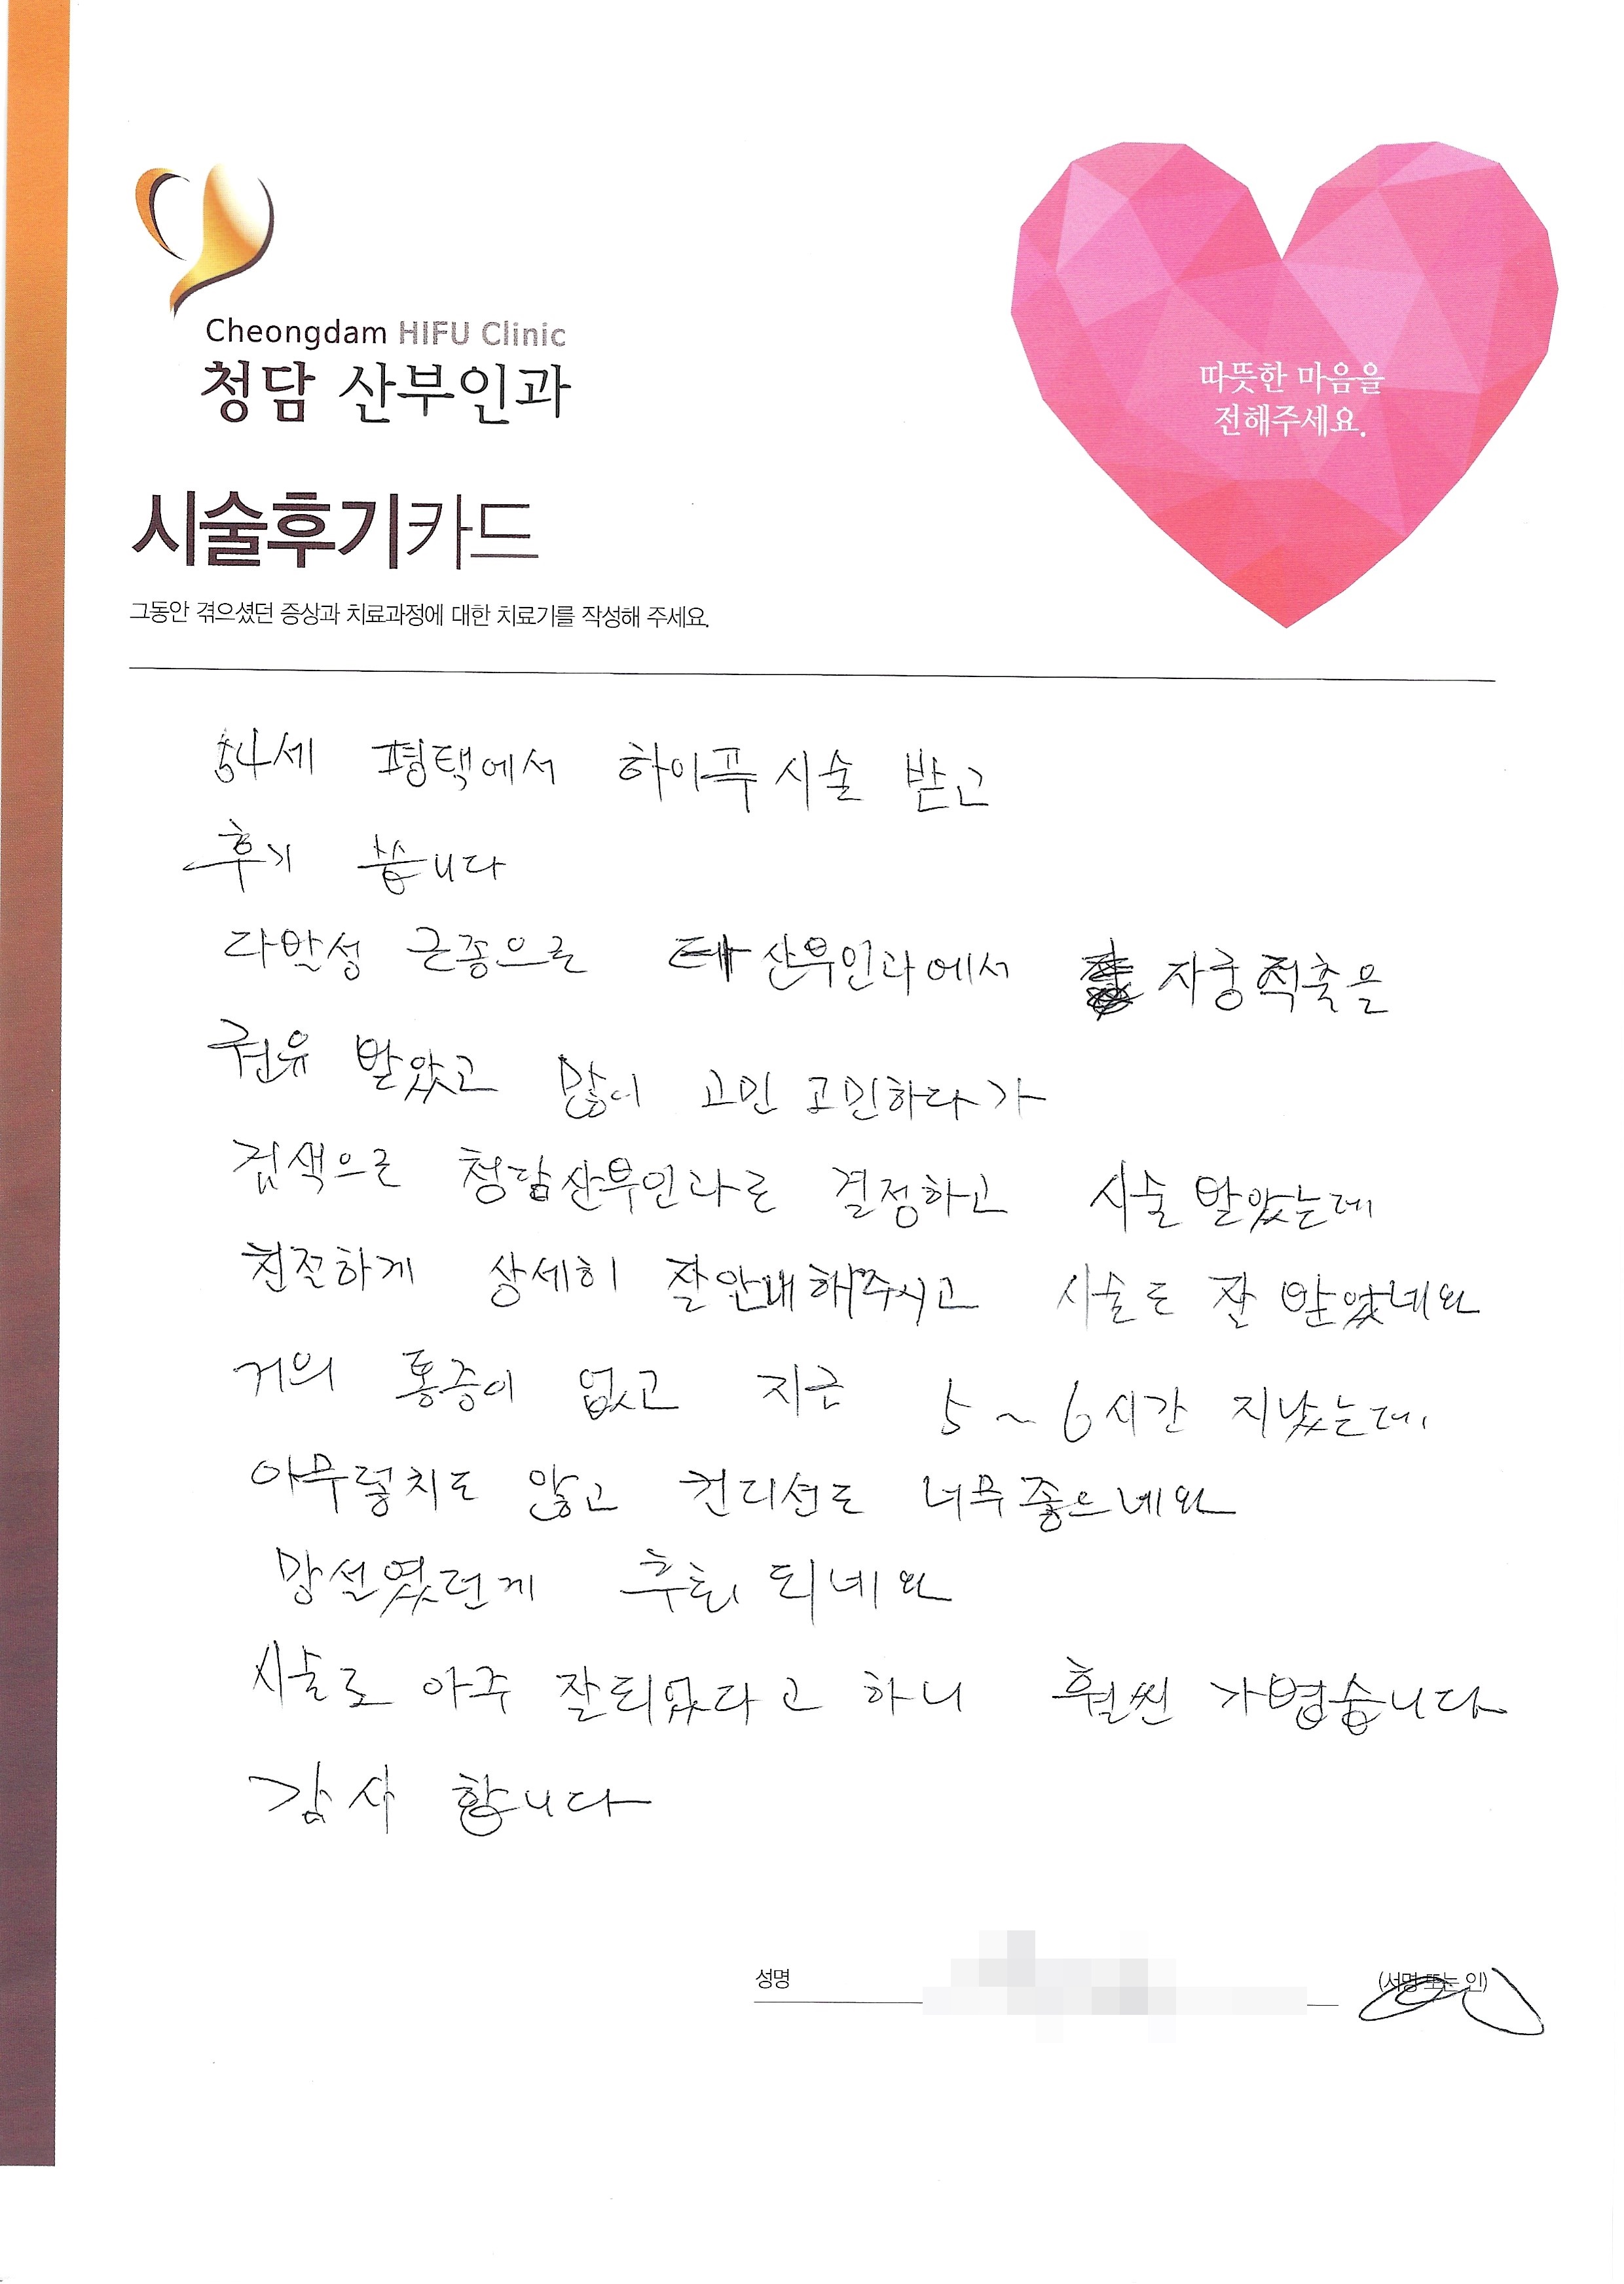 Cheongdam HIFU Clinic
청담 산부인과
따뜻한 마음을
전해주세요.
시술후기카드
그동안 겪으셨던 증상과 치료과정에 대한 치료기를 작성해 주세요.
54세 평택에서 하이푸 시술 받고
후기 씁니다
다발성 근종으로 타 산부인과에서 자궁적출을
권유 받았고 많이 고민 고민하다가
검색으로 청담산부인과로 결정하고 시술 받았는데
친절하게 상세히 잘안내해주시고 시술도 잘 받았네요
거의 통증이 없고 지금 5~6시간 지났는데
아무렇치도 않고 컨디션도 너무좋으네요
망설였던게 후회 되네요
시술로 아주 잘되었다고 하니 훨씬 가볍습니다
감사 합니다
성명
(서명 또는 인)